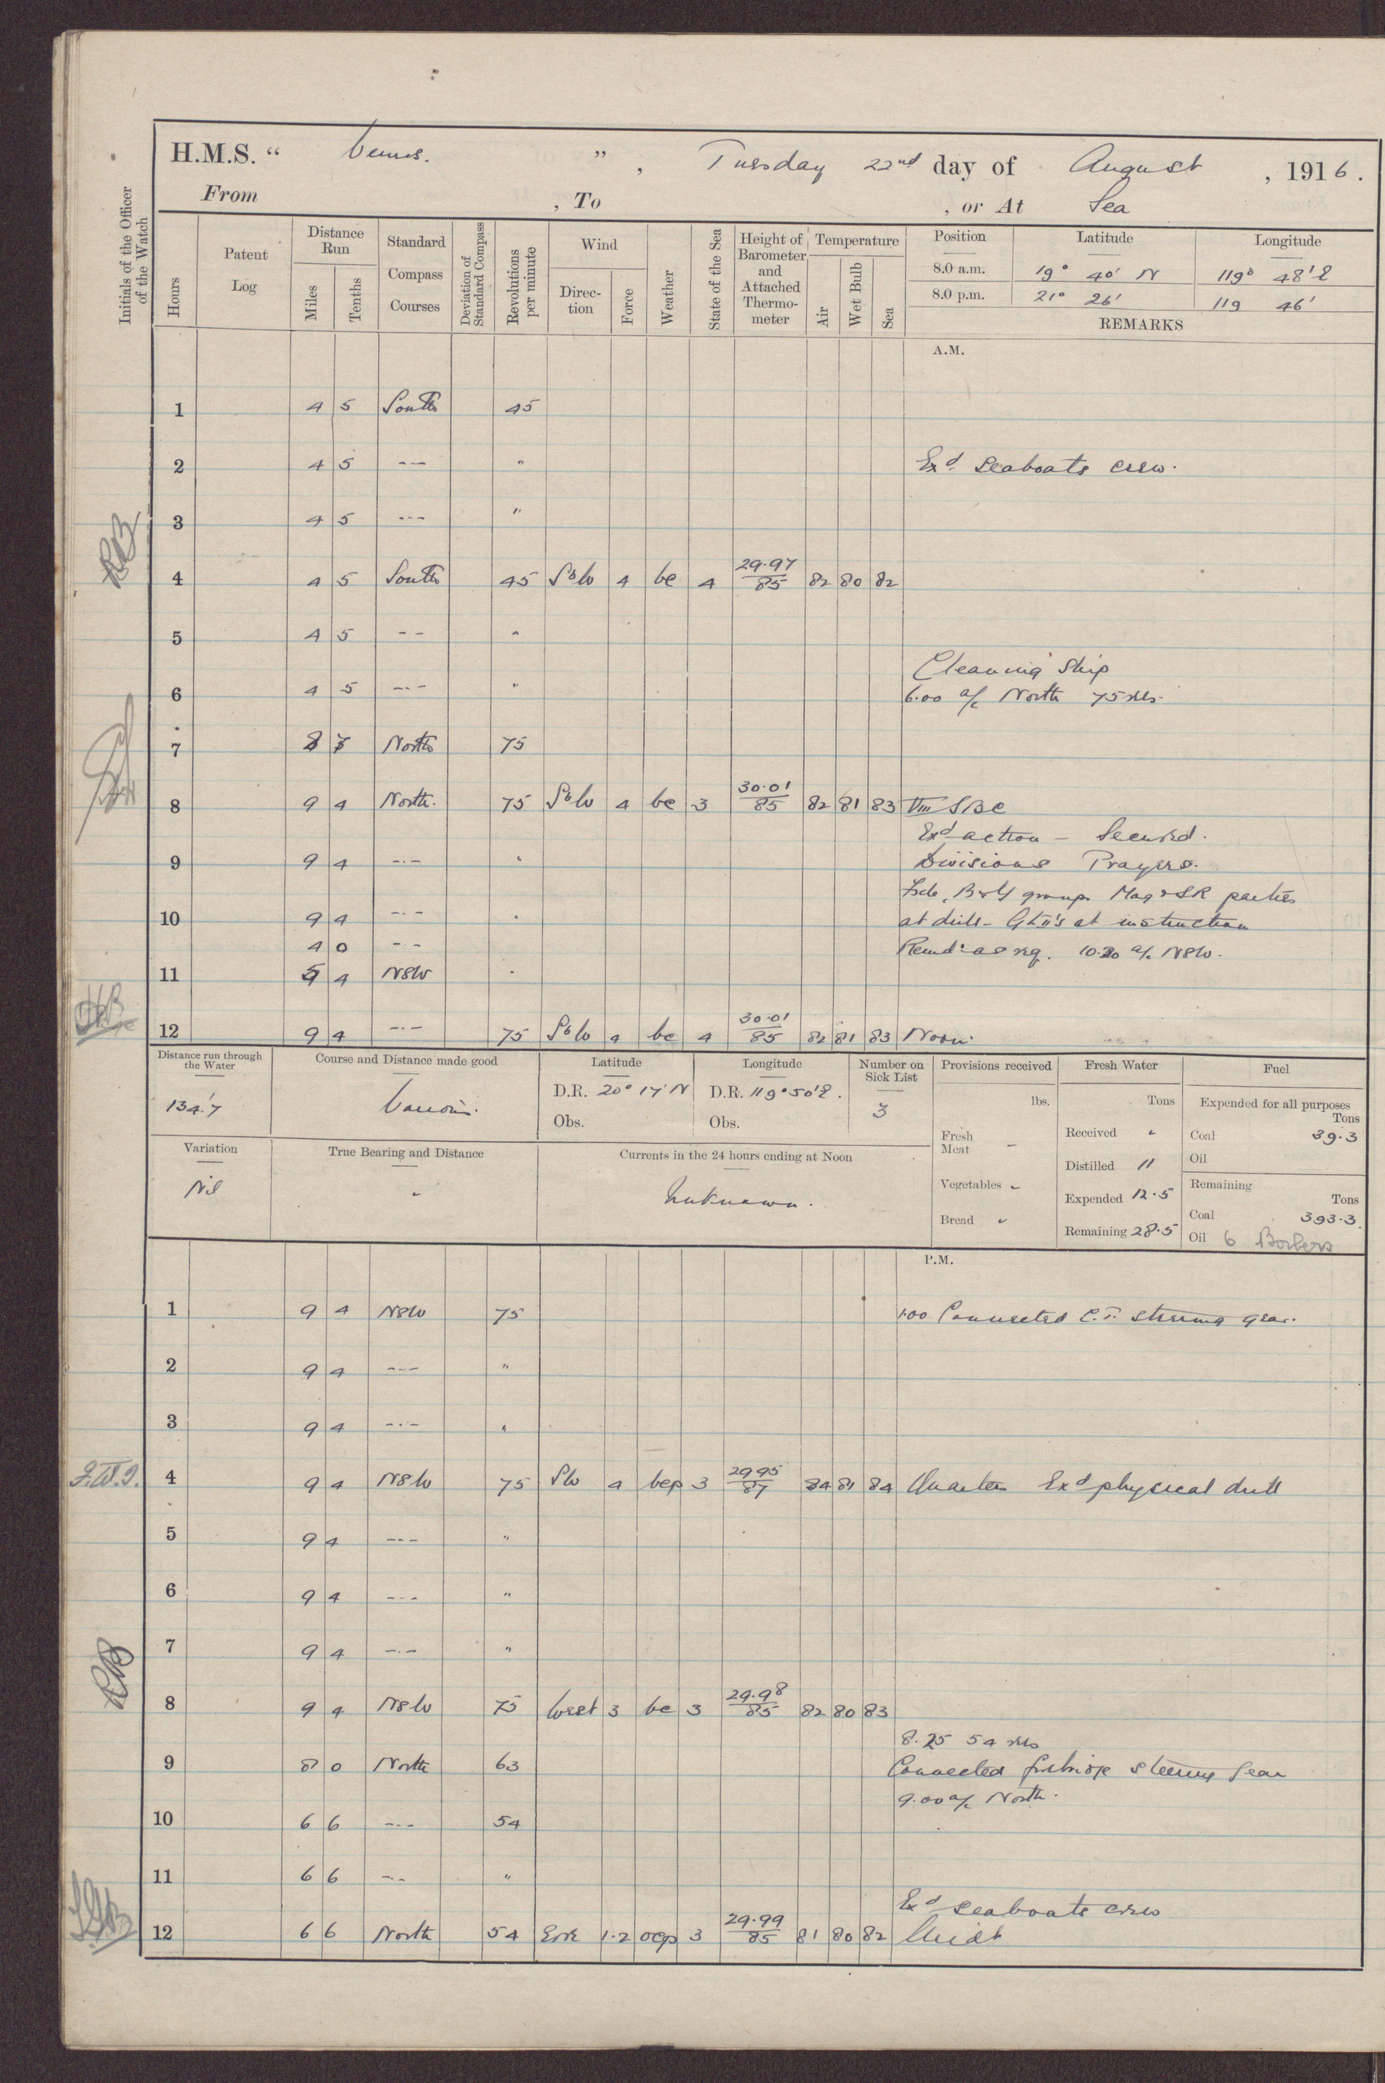 H.M.S. “ Venus. ” , Tuesday 22nd day of August , 1916.
From , To , or At Sea
Initials of the Officer of the Watch
Hours Patent Log Distance Run Miles Tenths Standard Compass Courses Deviation of Standard Compass Revolutions per minute Wind Direction Force Weather State of the Sea Height of Barometer and Attached Thermometer Temperature Air Wet Bulb Sea
Position Latitude Longitude
8.0 a.m. 19° 40' N 119° 48' E
8.0 p.m. 21° 26' 119 46'
REMARKS
A.M.
1 4 5 South 45
2 4 5 -- " Exd. Seaboats crew.
3 4 5 --- "
4 4 5 South 45 SbW 4 bc 4 29.97 / 85 82 80 82
5 4 5 -- "
Cleaning Ship
6 4 5 --- " 6.00 a/c North 75 rvs.
7 8 7 North 75
8 9 4 North. 75 SbW 4 bc 3 30.01 / 85 82 81 83 VIII SBC
Exd action - Secured.
9 9 4 --- " Divisions Prayers.
groups Mag & SR parties
10 9 4 --- " at drill - at instruction
4 0 -- Remdr as req. 10.20 a/c N8W.
11 5 4 N8W "
12 9 4 --- 75 SbW 4 bc 4 30.01 / 85 82 81 83 Noon.
Distance run through the Water 134.7
Course and Distance made good Various.
Latitude D.R. 20° 17' N Obs.
Longitude D.R. 119° 50' E. Obs.
Number on Sick List 3
Provisions received lbs. Fresh Meat - Vegetables - Bread -
Fresh Water Tons Received - Distilled 11 Expended 12.5 Remaining 28.5
Fuel Expended for all purposes Tons Coal 39.3 Oil
Remaining Tons Coal 393.3 Oil 6 Boilers
Variation Nil
True Bearing and Distance -
Currents in the 24 hours ending at Noon Unknown.
P.M.
1 9 4 N8W 75 1.00 Connected C.T. steering gear.
2 9 4 --- "
3 9 4 --- "
4 9 4 N8W 75 SW 4 bcp 3 29.95 / 87 84 81 84 Quarters Exd physical drill
5 9 4 --- "
6 9 4 --- "
7 9 4 --- "
RB
8 9 4 N8W 75 West 3 bc 3 29.98 / 85 82 80 83
8.25 54 rvs
9 8 0 North 63 Connected forebridge steering gear
9.00 a/c North.
10 6 6 --- 54
11 6 6 --- "
Exd seaboats crew
12 6 6 North 54 1.2 ocp 3 29.99 / 85 81 80 82 Midt